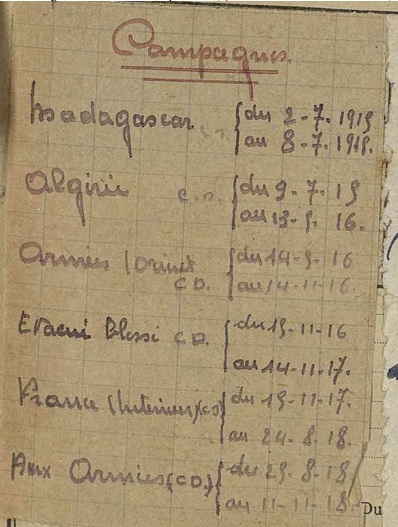 Campagnes.
Madagascar { du 2-7. 1915
au 8-7. 1915.
Algérie C.S. { du 9-7. 15
au 13-5. 16.
Armées (Orient
C.D. { du 14-5-16
au 14-11-16.
Evacué Blessé C.D. { du 15-11-16
au 14-11-17.
France (Intérieur)(CS) { du 15-11-17.
au 24-8. 18.
Aux Armées (CD.) { du 25-8. 18
au 11-11-18.
Du